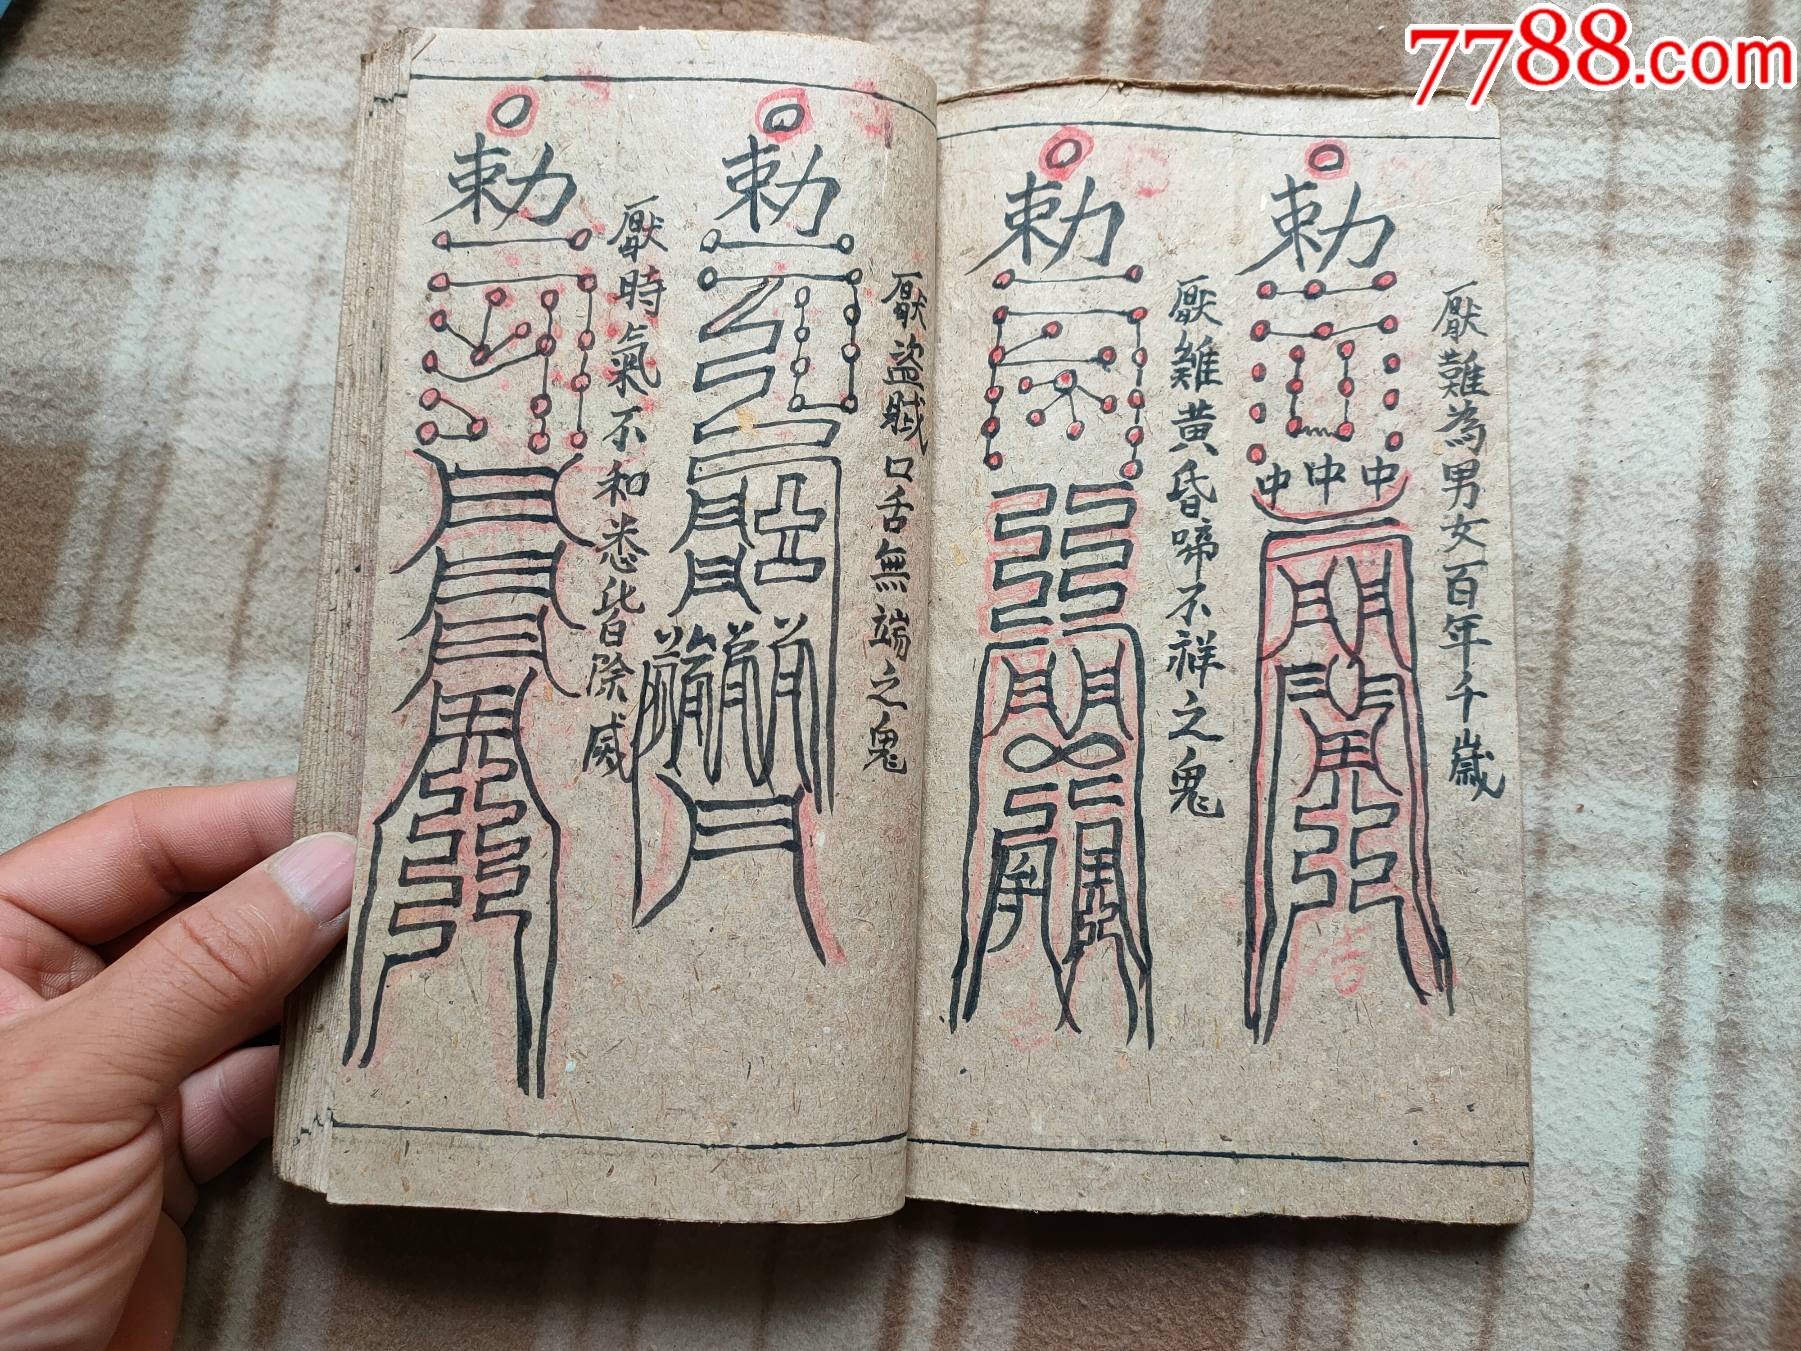 7788.com
厭難為男女百年千歲
勅
中中中
吉
厭雞黄昏啼不祥之鬼
勅
厭盗賊口舌無端之鬼
勅
厭時氣不和悉皆除
勅